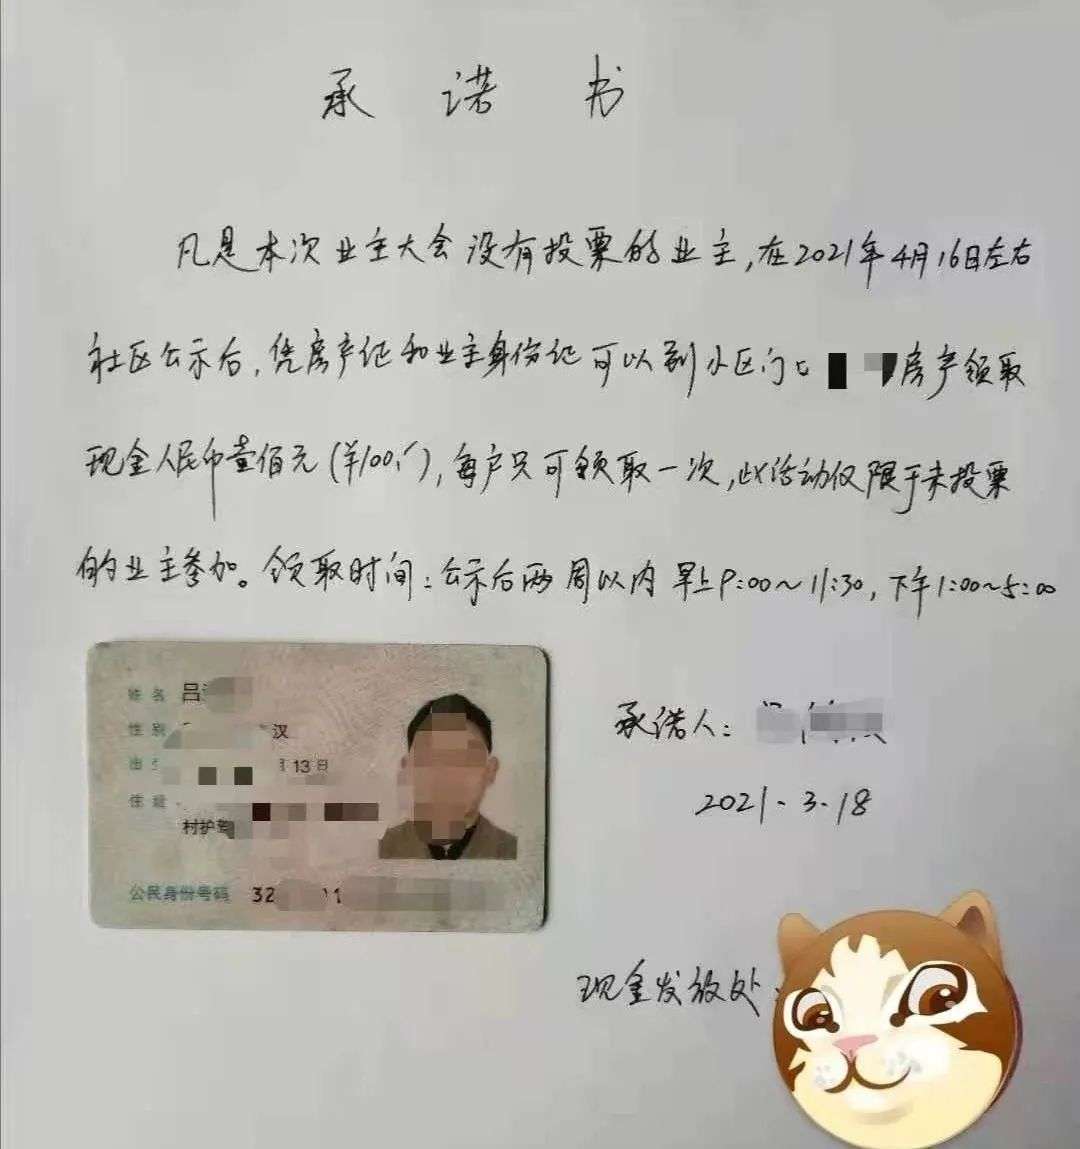 承诺书
凡是本次业主大会没有投票的业主,在2021年4月16日左右
社区公示后,凭房产证和业主身份证可以到小区门口 房产领取
现金人民币壹佰元(¥100元),每户只可领取一次,此活动仅限于未投票
的业主参加。领取时间:公示后两周以内 早上9:00~11:30,下午1:00~5:00
姓名 吕
性别 汉
出生 月13日
住址
村护
公民身份号码 32 11
承诺人:
2021.3.18
现金发放处: